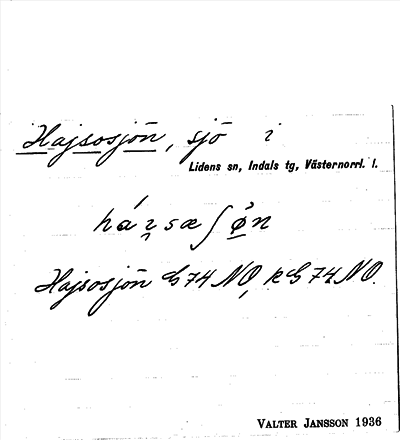 Hajsosjön, sjö i
Lidens sn, Indals tg, Västernorrl. l.
Hajsosjön G 74 NO, kG 74 NO.
VALTER JANSSON 1936